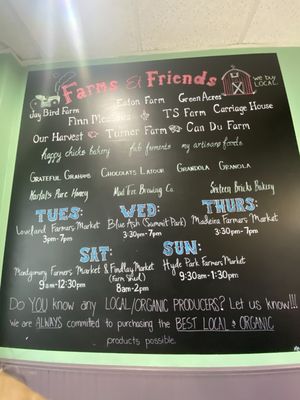 Farms & Friends
we buy LOCAL.
Jay Bird Farm
Eaton Farm
Green Acres
Finn Meadows
TS Farm
Carriage House
Our Harvest
Turner Farm
Can Du Farm
happy chicks bakery
fab ferments
my artisano foods
Grateful Grahams
Chocolats Latour
Grandola Granola
Mad Tree Brewing Co.
Sixteen Bricks Bakery
TUES:
WED:
THURS:
Loveland Farmers Market
Blue Ash (Summit Park)
Madeira Farmers Market
3pm-7pm
3:30pm-7pm
3:30pm-7pm
SAT:
SUN:
Montgomery Farmers Market & Findlay Market
(Farm Shed)
Hyde Park Farmers Market
9am-12:30pm
8am-2pm
9:30am-1:30pm
Do YOU know any LOCAL/ORGANIC PRODUCERS? Let us know!!!
We are ALWAYS committed to purchasing the BEST LOCAL & ORGANIC
products possible.